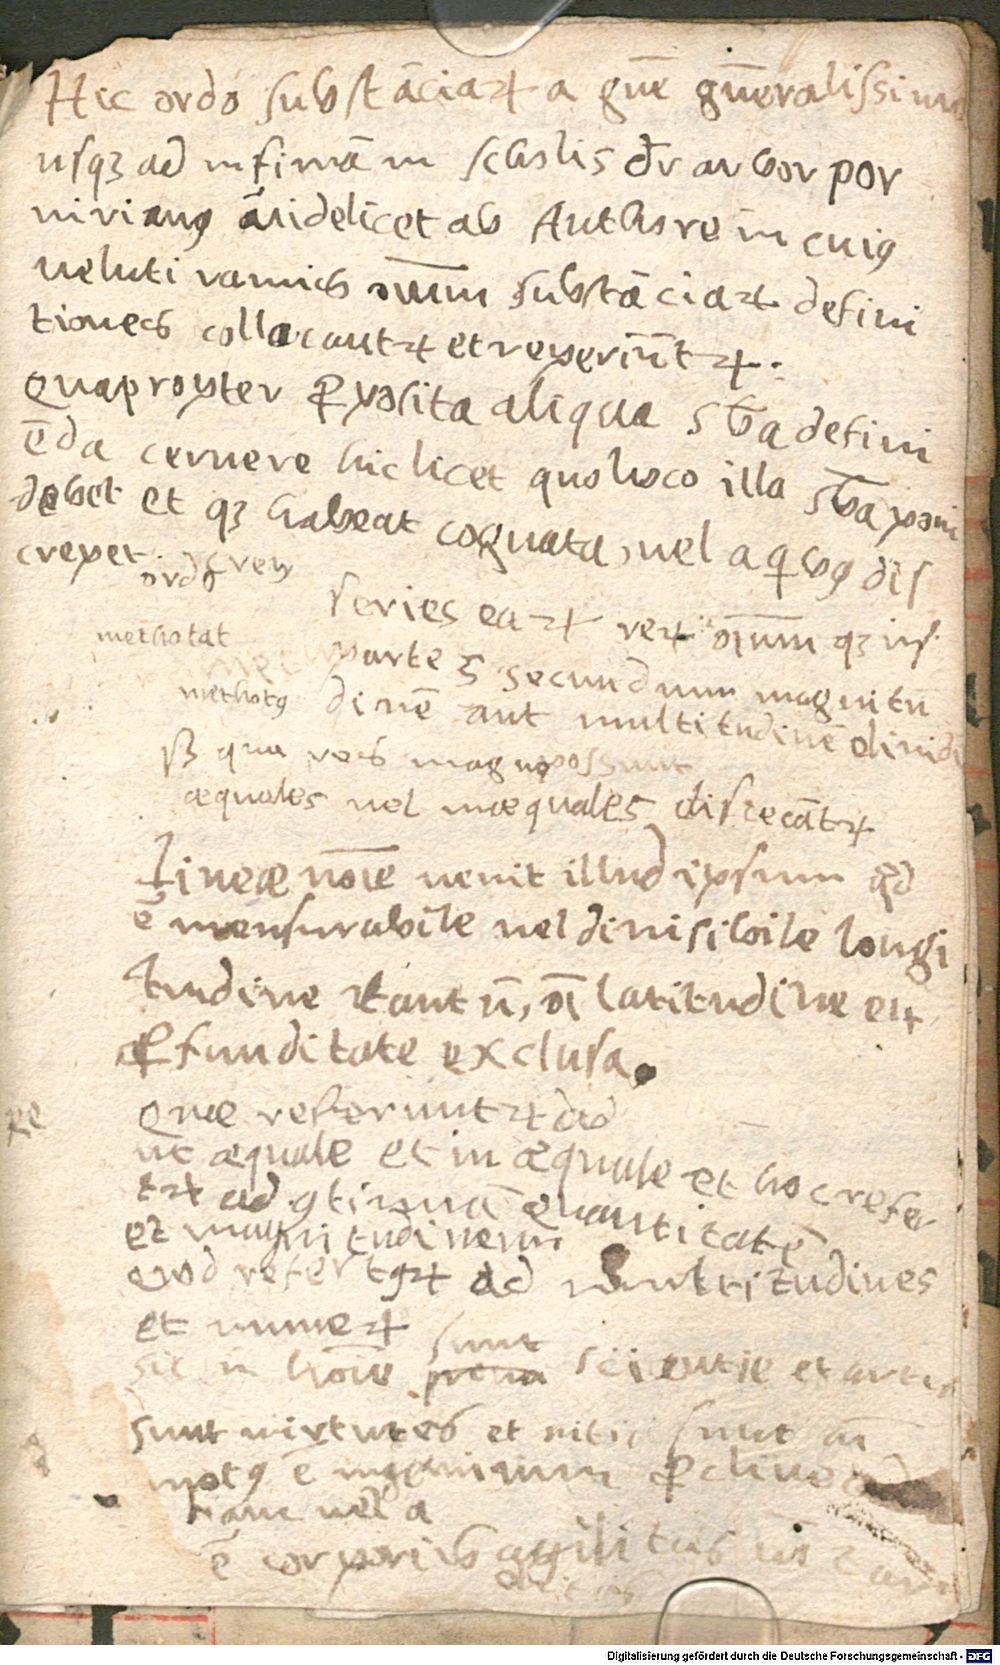 Hic ordo substāciaꝝ a gn̄e gn̄eralissimo
usqꝫ ad infimā in scholis dr̄ arbor por
nirianꝰ videlicet ab Authore in cuiꝰ
ueluti ramis om̄m substāciaꝝ defini
tiones collocantꝝ et reperiūtꝝ.
Quapropter ꝓposita aliqua sb̄a defini
ēda cernere hic licet quo loco illa sb̄a poni
debet et qꝫ habeat cognata, uel a qꝰ dis
crepet.
ordo
series eaꝝ reꝝ oīum qꝫ in
partes secundum magnitu
methotꝰ dinē aut multitudinē diuidi
possunt
æquales uel inæquales disecātꝝ
Lineæ noīe uenit illud ipsum qd
ē mensurabile uel diuisibile longi
tudine tantū, oī latitudine et
ꝓfunditate exclusa.
Quæ referuntꝝ ad
ut æquale et inæquale et hoc refer
tꝝ ad ꝯtinuā quantitatē
et magnitudinem
quod refertꝝ ad multitudines
et numeꝝ
sunt
sic in hoīe scientie et artes
sunt uirtutes et uitia sunt
motꝰ ē ingenium ꝓcliue ad
uel a
ē corporis agilitas